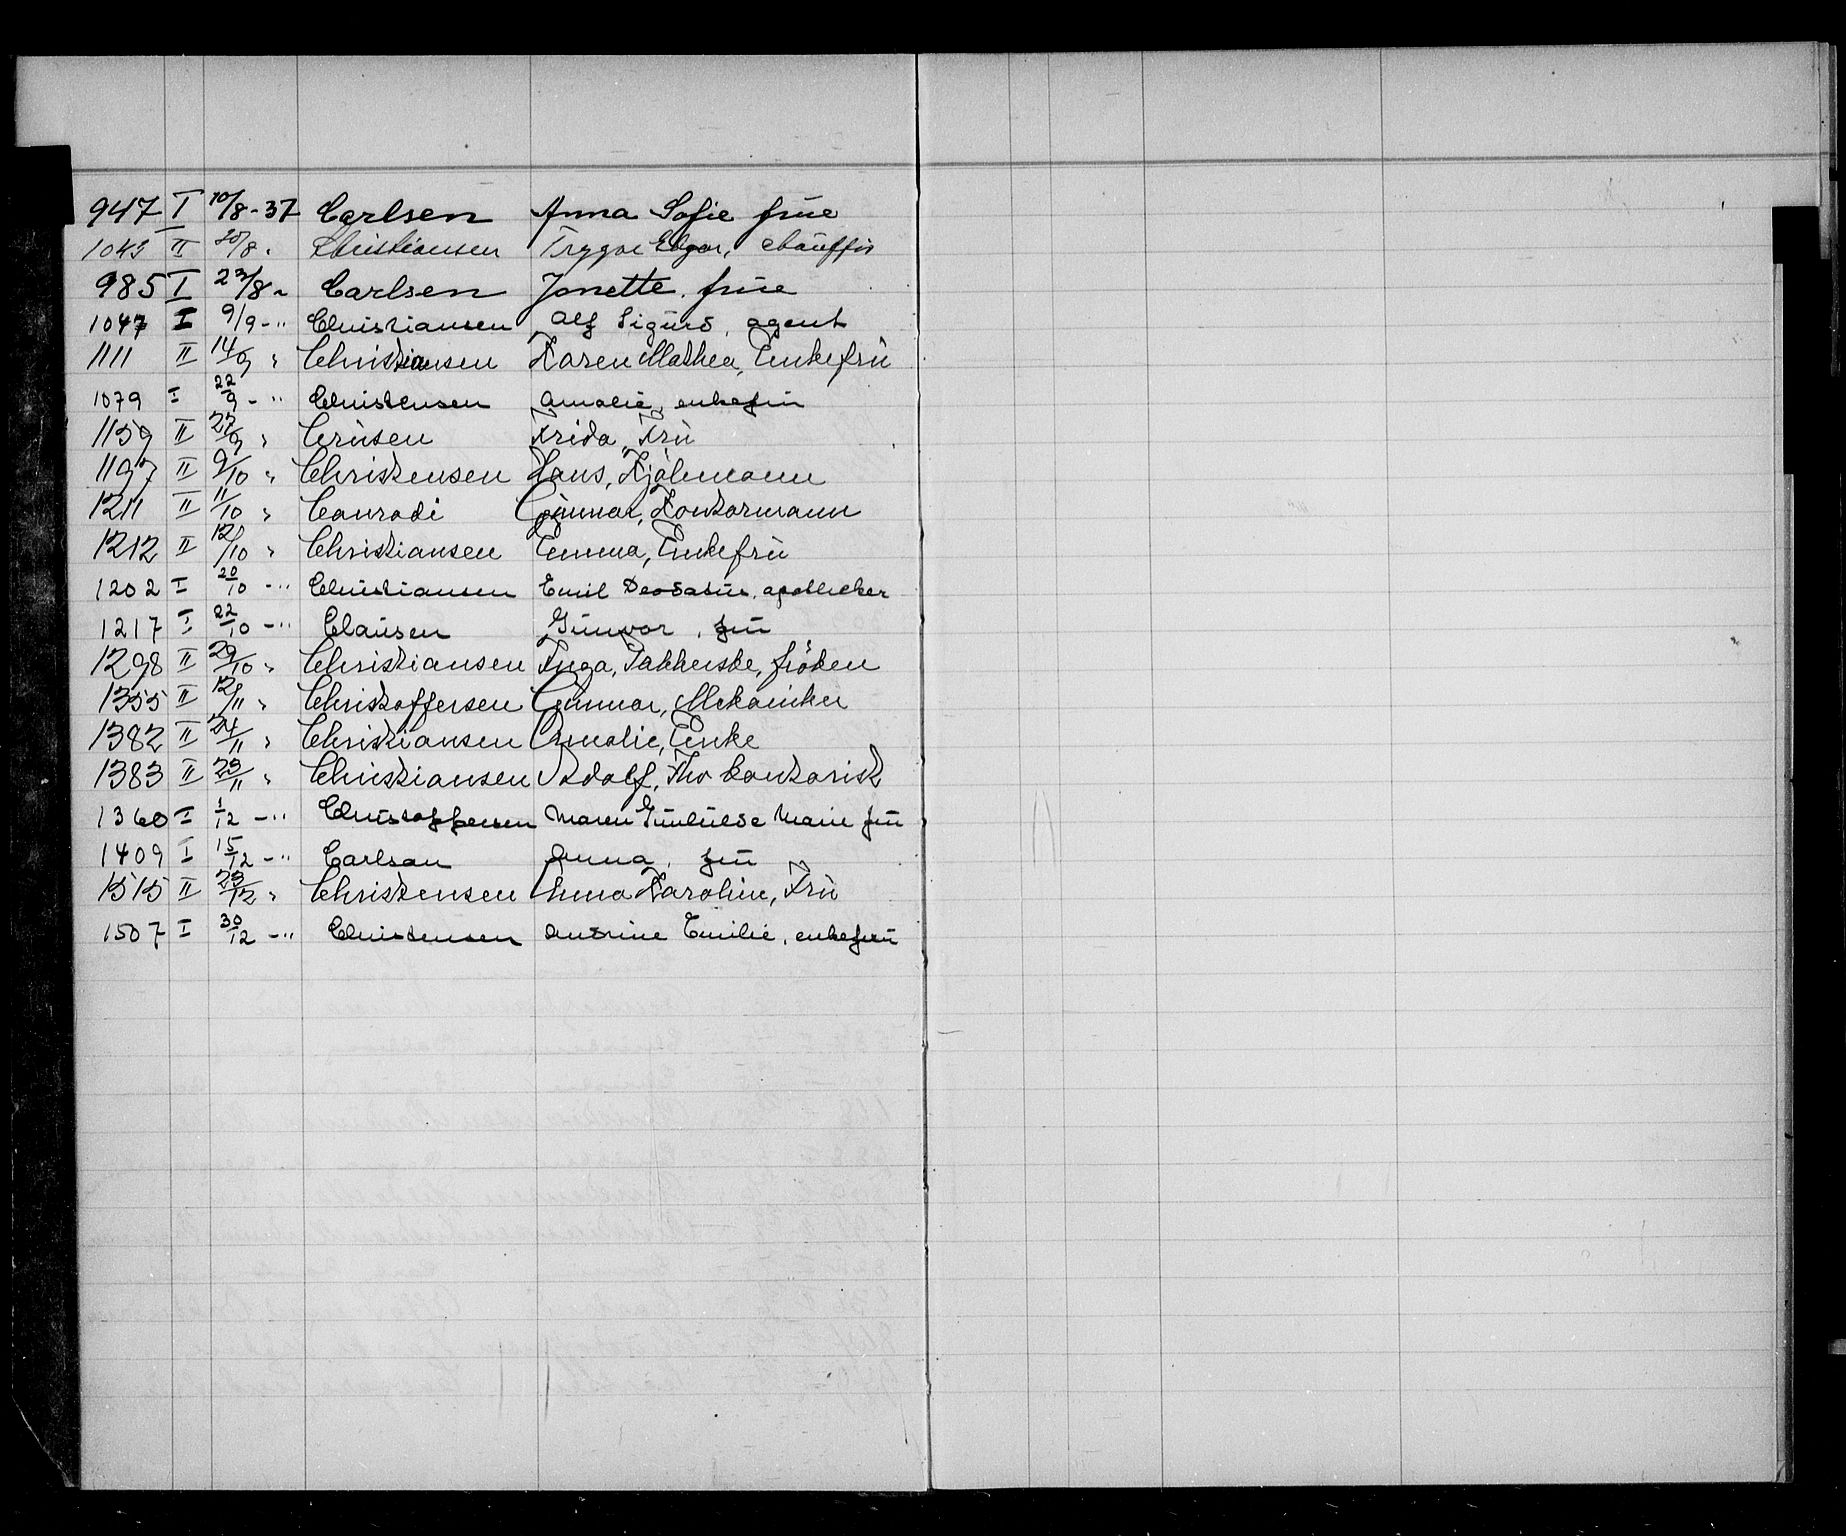 947 I 10/8-37 Carlsen Anna Sofie frue
1043 II 20/8 " Christiansen Trygve Edgar, chauffør
985 I 23/8 " Carlsen Jonette. frue
1047 I 9/9 -" Christiansen Alf Sigurd, agent
1111 II 14/9 " Christiansen Karen Mathea, Enkefru
1079 I 22/9 -" Christensen Amalie, enkefru
1159 II 27/9 " Crusen Frida, Fru
1197 II 9/10 " Christensen Hans, Kjøbmann
1211 II 11/10 " Conradi Gunnar, Kontormann
1212 II 12/10 " Christiansen Emma, Enkefru
1202 I 20/10 -" Christiansen Emil Deodatus, apotheker
1217 I 22/10 -" Clausen Gunvor, fru
1298 II 29/10 " Christiansen Inga, frøken
1355 II 12/11 " Christoffersen Gunnar, Mekaniker
1382 II 24/11 " Christiansen Amalie, Enke
1383 II 25/11 " Christiansen Adolf, Kontorist
1360 I 1/12 -" Christoffersen Maren Gunhilde Marie fru
1409 I 15/12 -" Carlsen Anna, fru
1515 II 23/12 " Christensen Anna Karoline, Fru
1507 I 30/12 -" Christensen Andrine Emilie, enkefru